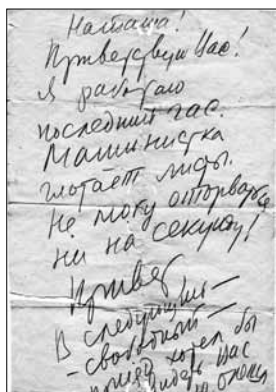 Наташа!
Приветствую Вас!
Я работаю
последний час.
Машинистка
глотает листы.
Не могу оторваться
ни на секунду!
Привет
В следующий –
– свободный –
приезд хотел бы
видеть Вас